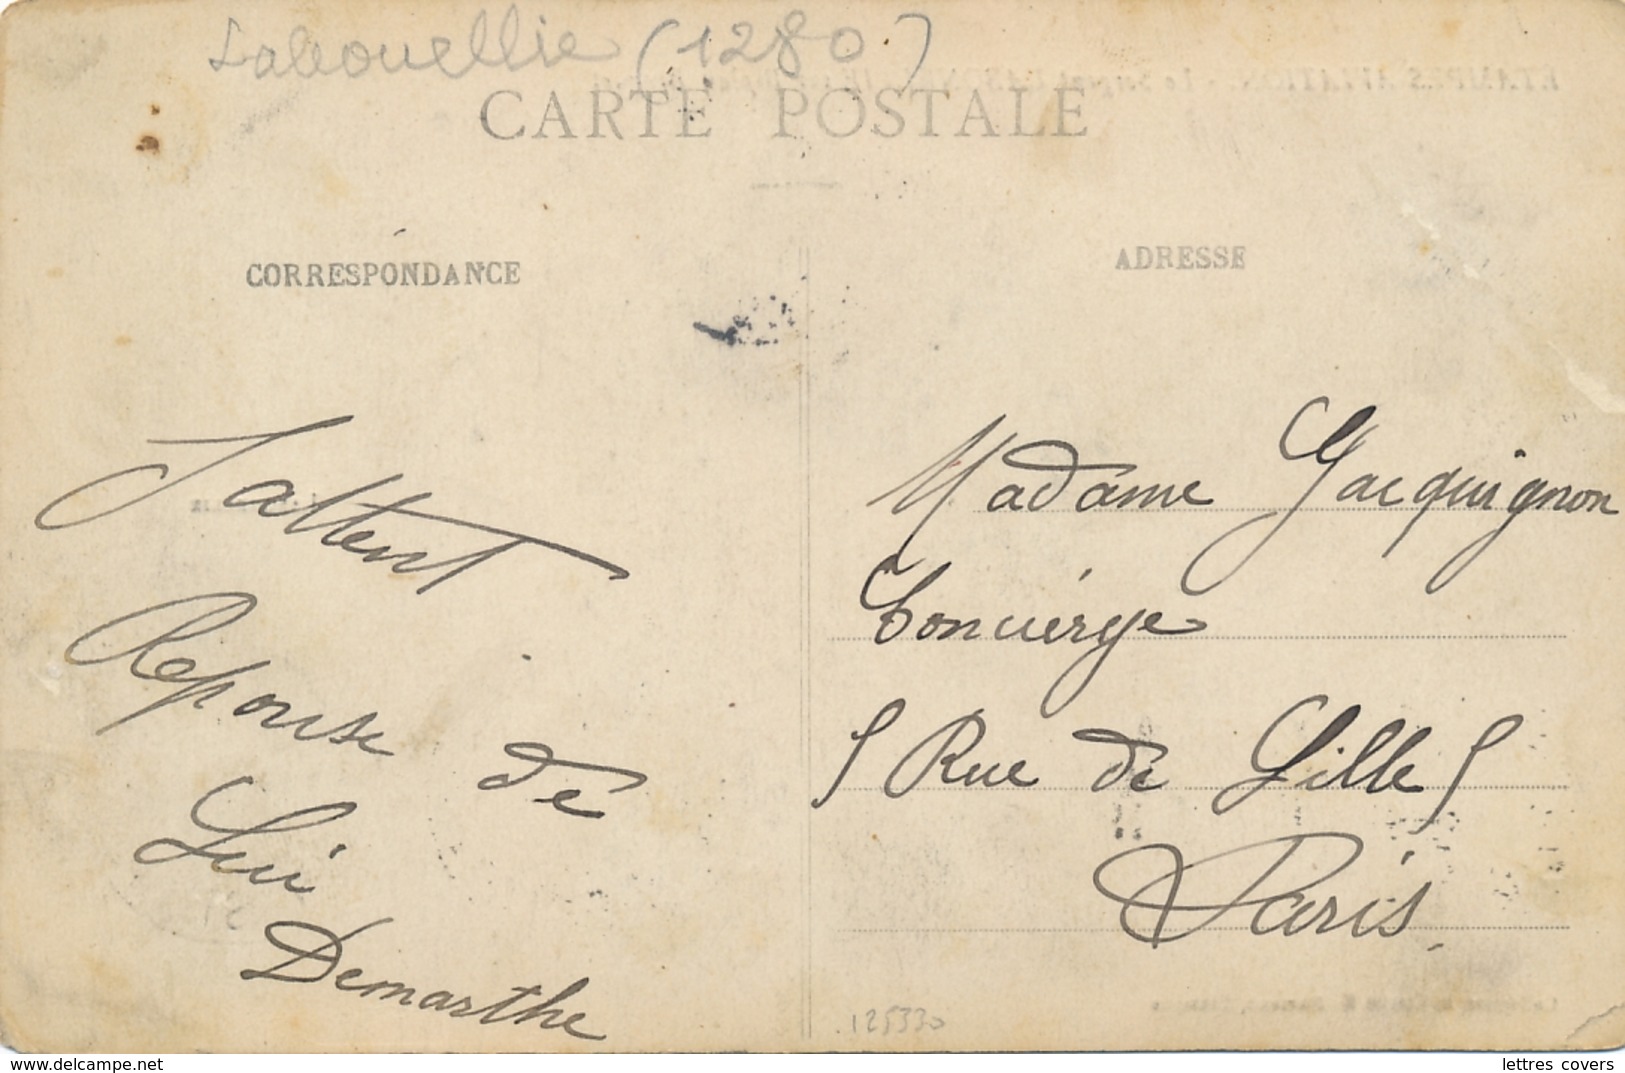 Labouellie (1280)
CARTE POSTALE
CORRESPONDANCE
ADRESSE
J'attent
Reponse de
Lui
Demarthe
Madame Jacquignon
Conciérge
5 Rue de Lille 5
Paris
125330
delcampe.net
lettres covers